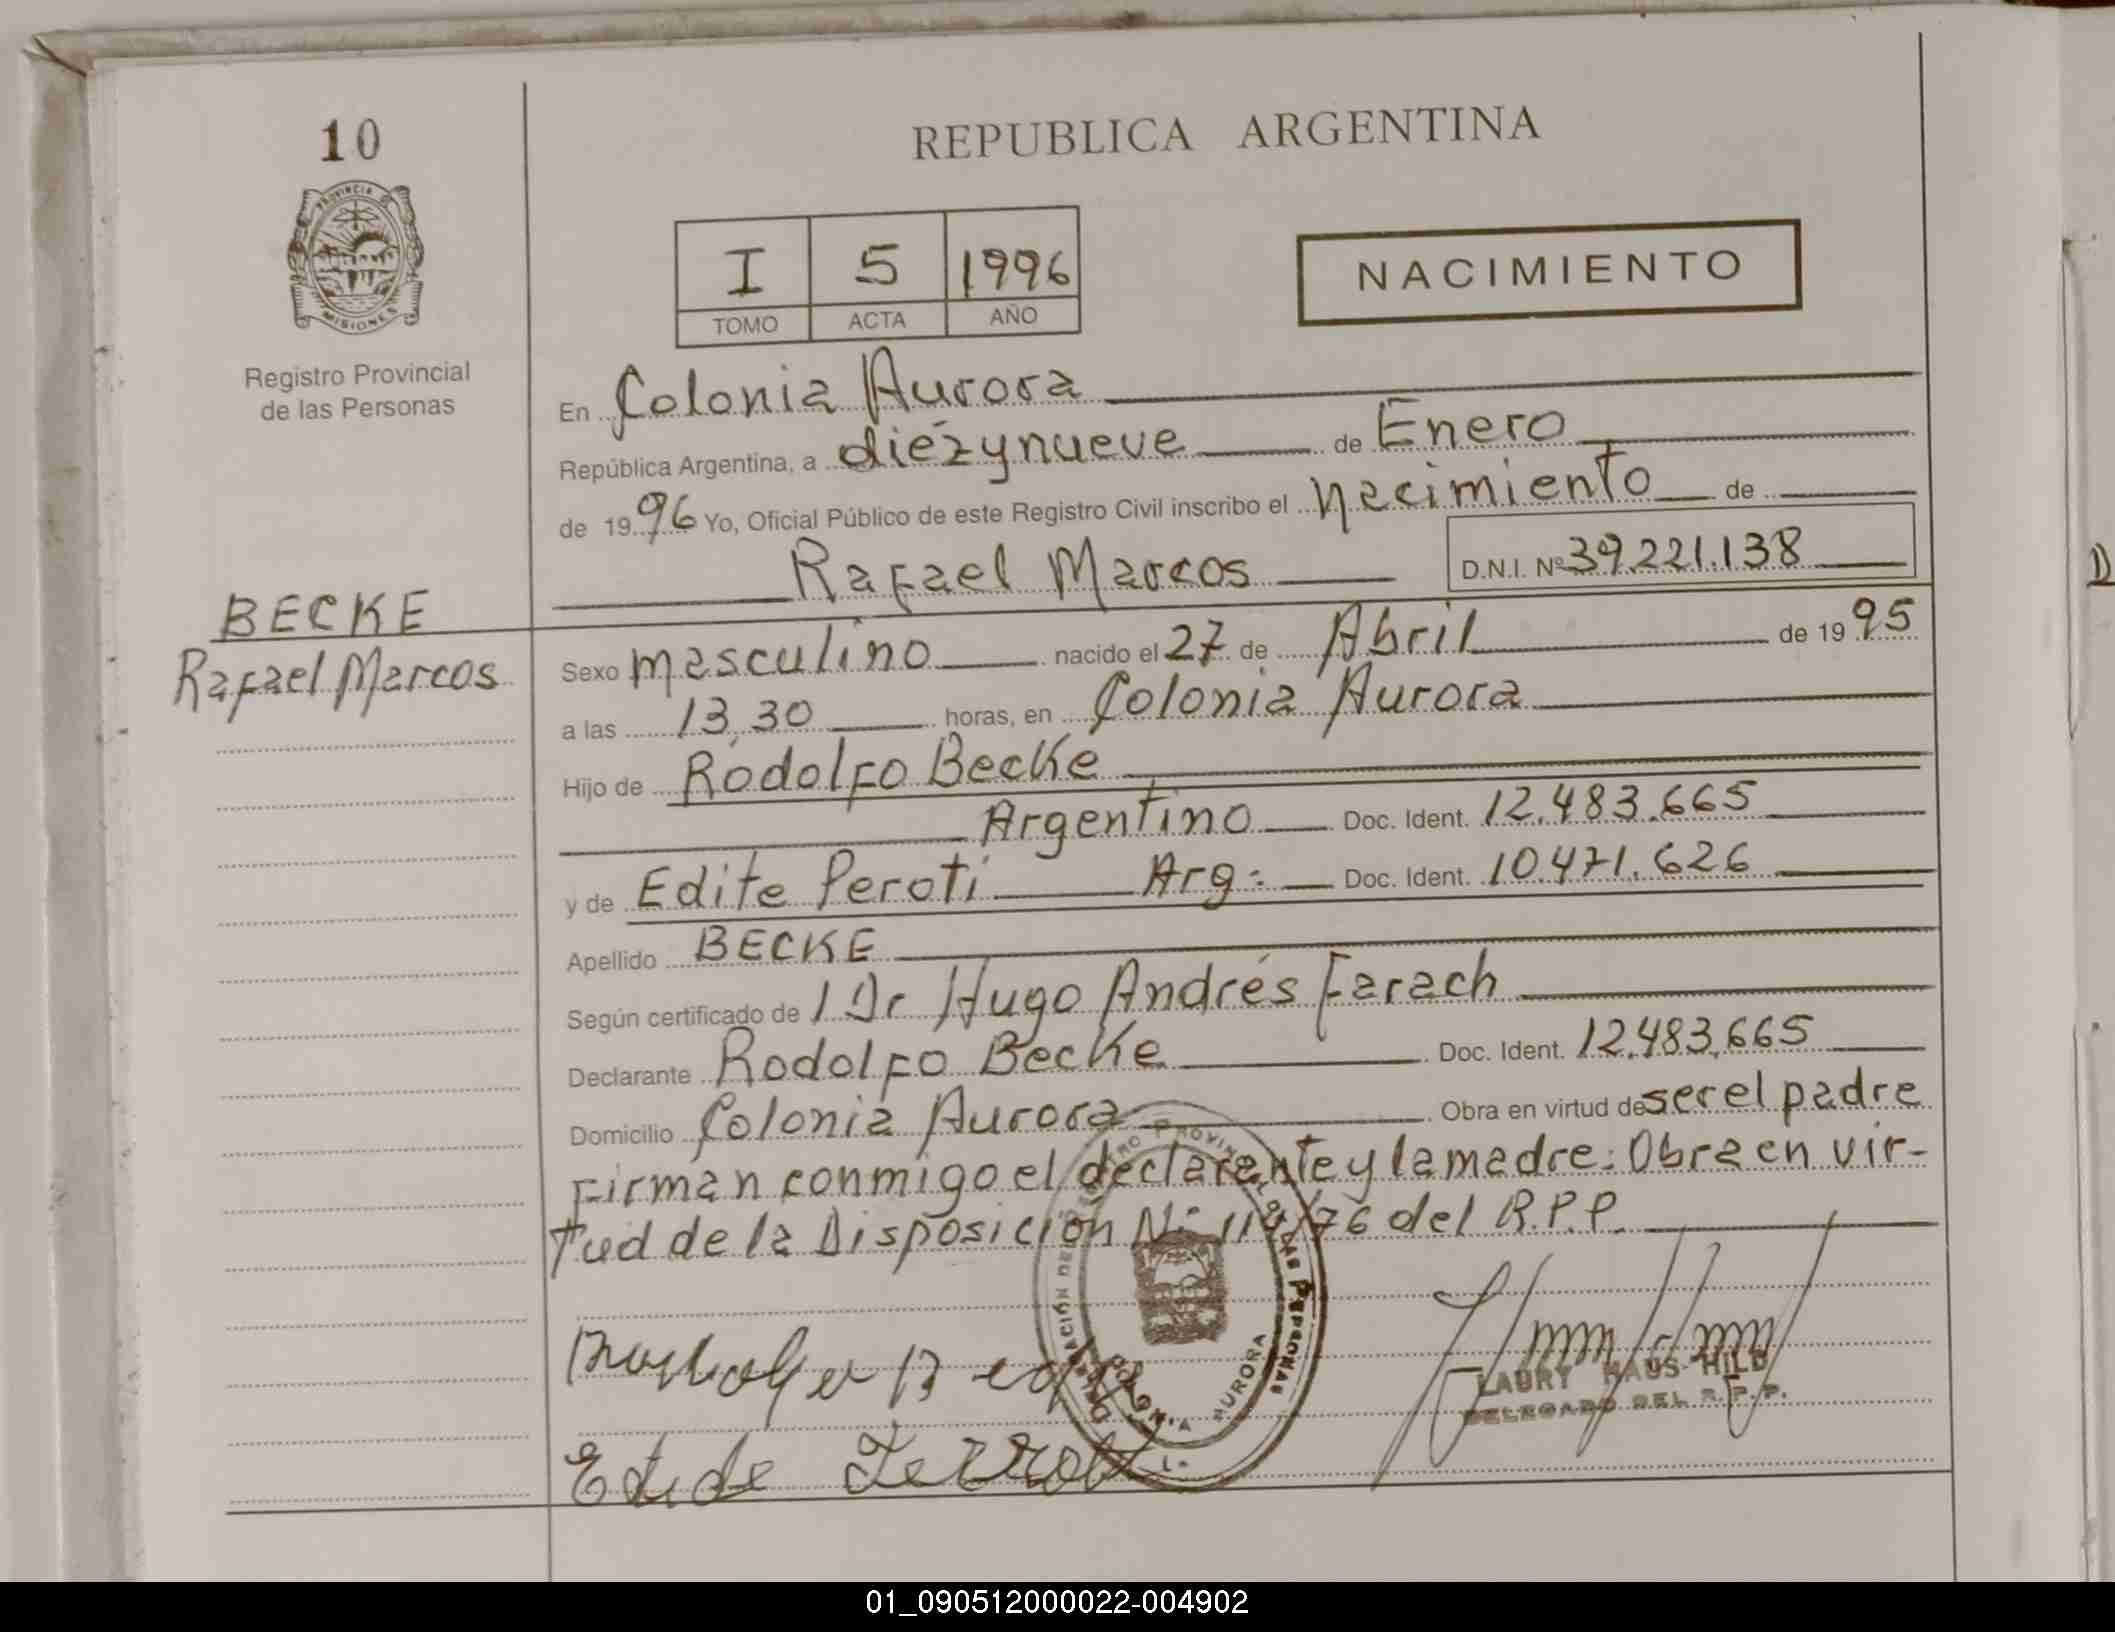 10
REPUBLICA ARGENTINA
PROVINCIA DE
MISIONES
Registro Provincial
de las Personas
I 5 1996
TOMO ACTA AÑO
NACIMIENTO
En Colonia Aurora
República Argentina, a diezynueve de Enero
de 1996 Yo, Oficial Público de este Registro Civil inscribo el Nacimiento de
Rafael Marcos D.N.I. Nº 39.221.138
BECKE
Rafael Marcos
Sexo masculino nacido el 27 de Abril de 1995
a las 13,30 horas, en Colonia Aurora
Hijo de Rodolfo Becke
Argentino Doc. Ident. 12.483.665
y de Edite Peroti Arg: Doc. Ident. 10.471.626
Apellido BECKE
Según certificado de 1 Dr Hugo Andrés Farach
Declarante Rodolfo Becke Doc. Ident. 12.483.665
Domicilio Colonia Aurora Obra en virtud de ser el padre
Firman conmigo el declarante y la madre: Obra en vir-
tud de la Disposición Nº /76 del R.P.P.
COLONIA AURORA
LAURY HAUS HILD
DELEGADO DEL R.P.P.
01_090512000022-004902